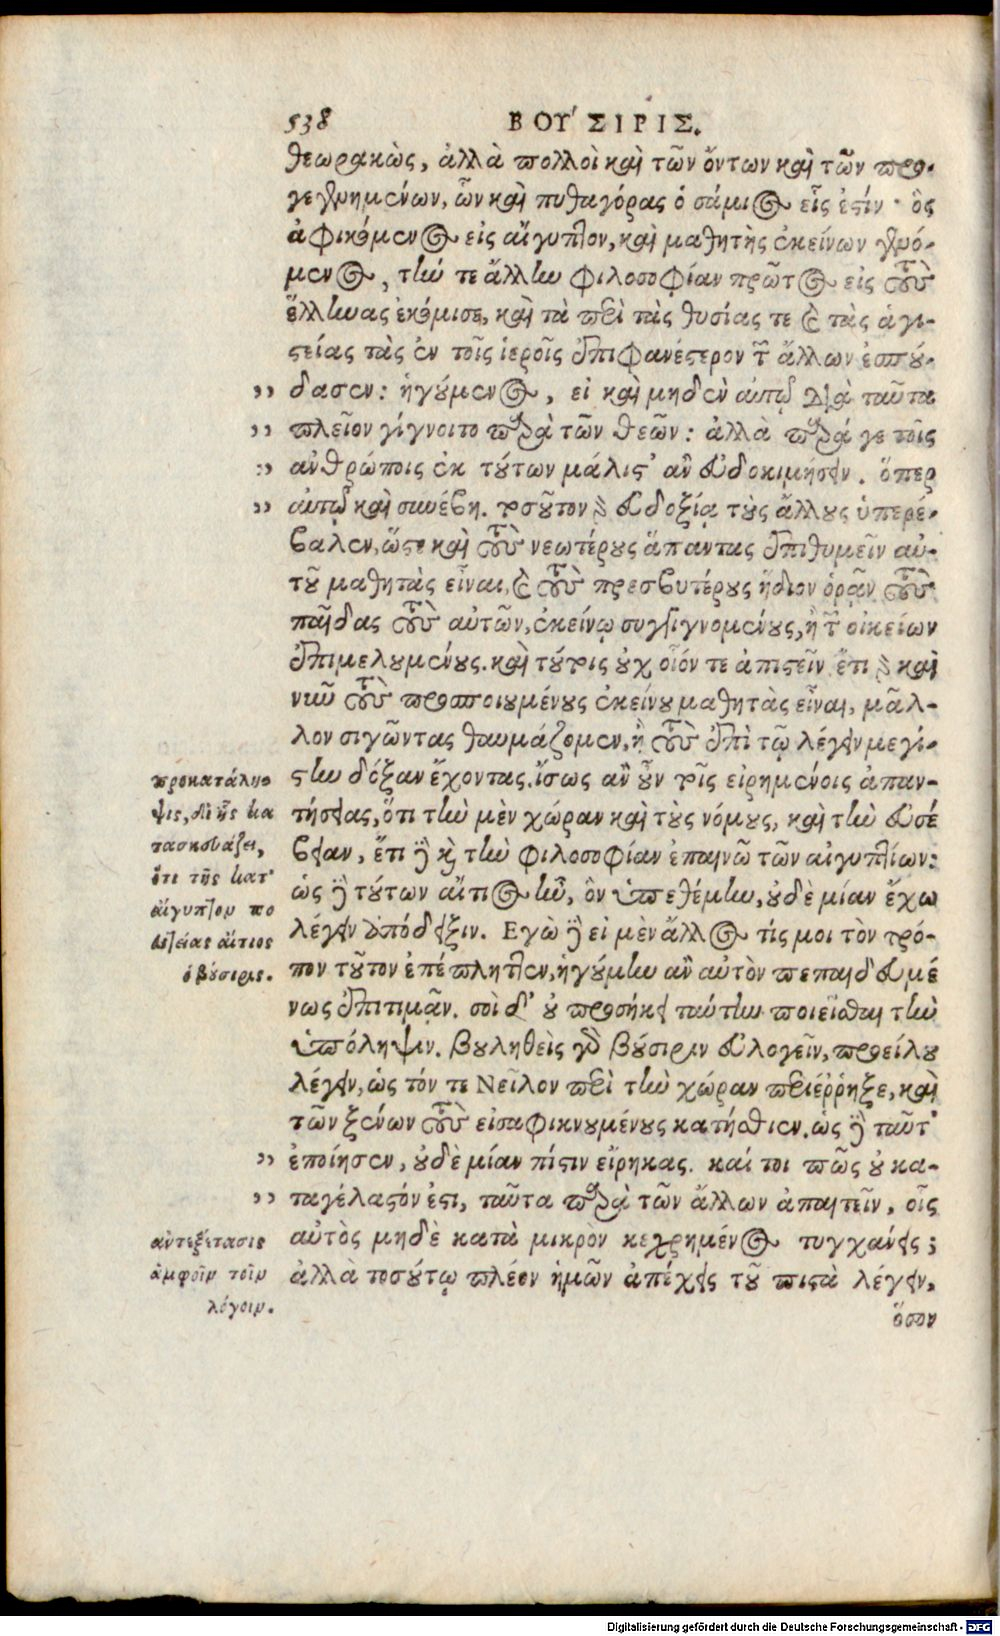 538 ΒΟΥ´ΣΙΡΙΣ.
θεωρακὼς, ἀλλὰ πολλοὶ καὶ τῶν ὄντων καὶ τῶν προ-
γεγενημένων, ὧν καὶ πυθαγόρας ὁ σάμιος εἷς ἐστίν· ὃς
ἀφικόμενος εἰς αἴγυπτον, καὶ μαθητὴς ἐκείνων γενό-
μενος, τήν τε ἄλλην φιλοσοφίαν πρῶτος εἰς τοὺς
ἕλληνας ἐκόμισε, καὶ τὰ περὶ τὰς θυσίας τε καὶ τὰς ἁγι-
στείας τὰς ἐν τοῖς ἱεροῖς ἐπιφανέστερον τῶν ἄλλων ἐσπού-
,, δασεν: ἡγούμενος, εἰ καὶ μηδὲν αὐτῷ διὰ ταῦτα
,, πλεῖον γίγνοιτο παρὰ τῶν θεῶν: ἀλλὰ παρά γε τοῖς
,, ἀνθρώποις ἐκ τούτων μάλιστ' ἂν εὐδοκιμήσειν. ὅπερ
,, αὐτῷ καὶ συνέβη. τοσοῦτον γὰρ εὐδοξίᾳ τοὺς ἄλλους ὑπερέ-
βαλεν, ὥστε καὶ τοὺς νεωτέρους ἅπαντας ἐπιθυμεῖν αὐ-
τοῦ μαθητὰς εἶναι, καὶ τοὺς πρεσβυτέρους ἥδιον ὁρᾶν τοὺς
παῖδας τοὺς αὐτῶν, ἐκείνῳ συγγιγνομένους, ἢ τῶν οἰκείων
ἐπιμελουμένους. καὶ τούτοις οὐχ οἷόν τε ἀπιστεῖν. ἔτι γὰρ καὶ
νῦν τοὺς προσποιουμένους ἐκείνου μαθητὰς εἶναι, μᾶλ-
λον σιγῶντας θαυμάζομεν, ἢ τοὺς ἐπὶ τῷ λέγειν μεγί-
στην δόξαν ἔχοντας. ἴσως ἂν οὖν τοῖς εἰρημένοις ἀπαν-
τήσειας, ὅτι τὴν μὲν χώραν καὶ τοὺς νόμους, καὶ τὴν εὐσέ
βειαν, ἔτι δὲ καὶ τὴν φιλοσοφίαν ἐπαινῶ τῶν αἰγυπτίων:
ὡς δὲ τούτων αἴτιος ἦν, ὃν ὑπεθέμην, οὐδὲ μίαν ἔχω
λέγειν ἀπόδειξιν. Εγὼ δὲ εἰ μὲν ἄλλος τίς μοι τὸν τρό-
πον τοῦτον ἐπέπληττεν, ἡγούμην ἂν αὐτὸν πεπαιδευμέ
νως ἐπιτιμᾶν. σοὶ δ' οὐ προσήκει ταύτην ποιεῖσθαι τὴν
ὑπόληψιν. βουληθεὶς γὰρ βούσιριν εὐλογεῖν, προείλου
λέγειν, ὡς τόν τε Νεῖλον περὶ τὴν χώραν περιέρρηξε, καὶ
τῶν ξένων τοὺς εἰσαφικνουμένους κατήσθιεν. ὡς δὲ ταῦτ'
,, ἐποίησεν, οὐδὲ μίαν πίστιν εἴρηκας. καί τοι πῶς οὐ κα-
,, ταγέλαστόν ἐστι, ταῦτα παρὰ τῶν ἄλλων ἀπαιτεῖν, οἷς
αὐτὸς μηδὲ κατὰ μικρὸν κεχρημένος τυγχάνεις;
ἀλλὰ τοσούτῳ πλέον ἡμῶν ἀπέχεις τοῦ πιστὰ λέγειν,
ὅσον
προκατάλη-
ψις, δι' ἧς κα
τασκευάζει,
ὅτι τῆς κατ'
αἴγυπτον πο
λιτείας αἴτιος
ὁ βούσιρις.
ἀντεξέτασις
ἀμφοῖν τοῖν
λόγοιν.
Digitalisierung gefördert durch die Deutsche Forschungsgemeinschaft - DFG